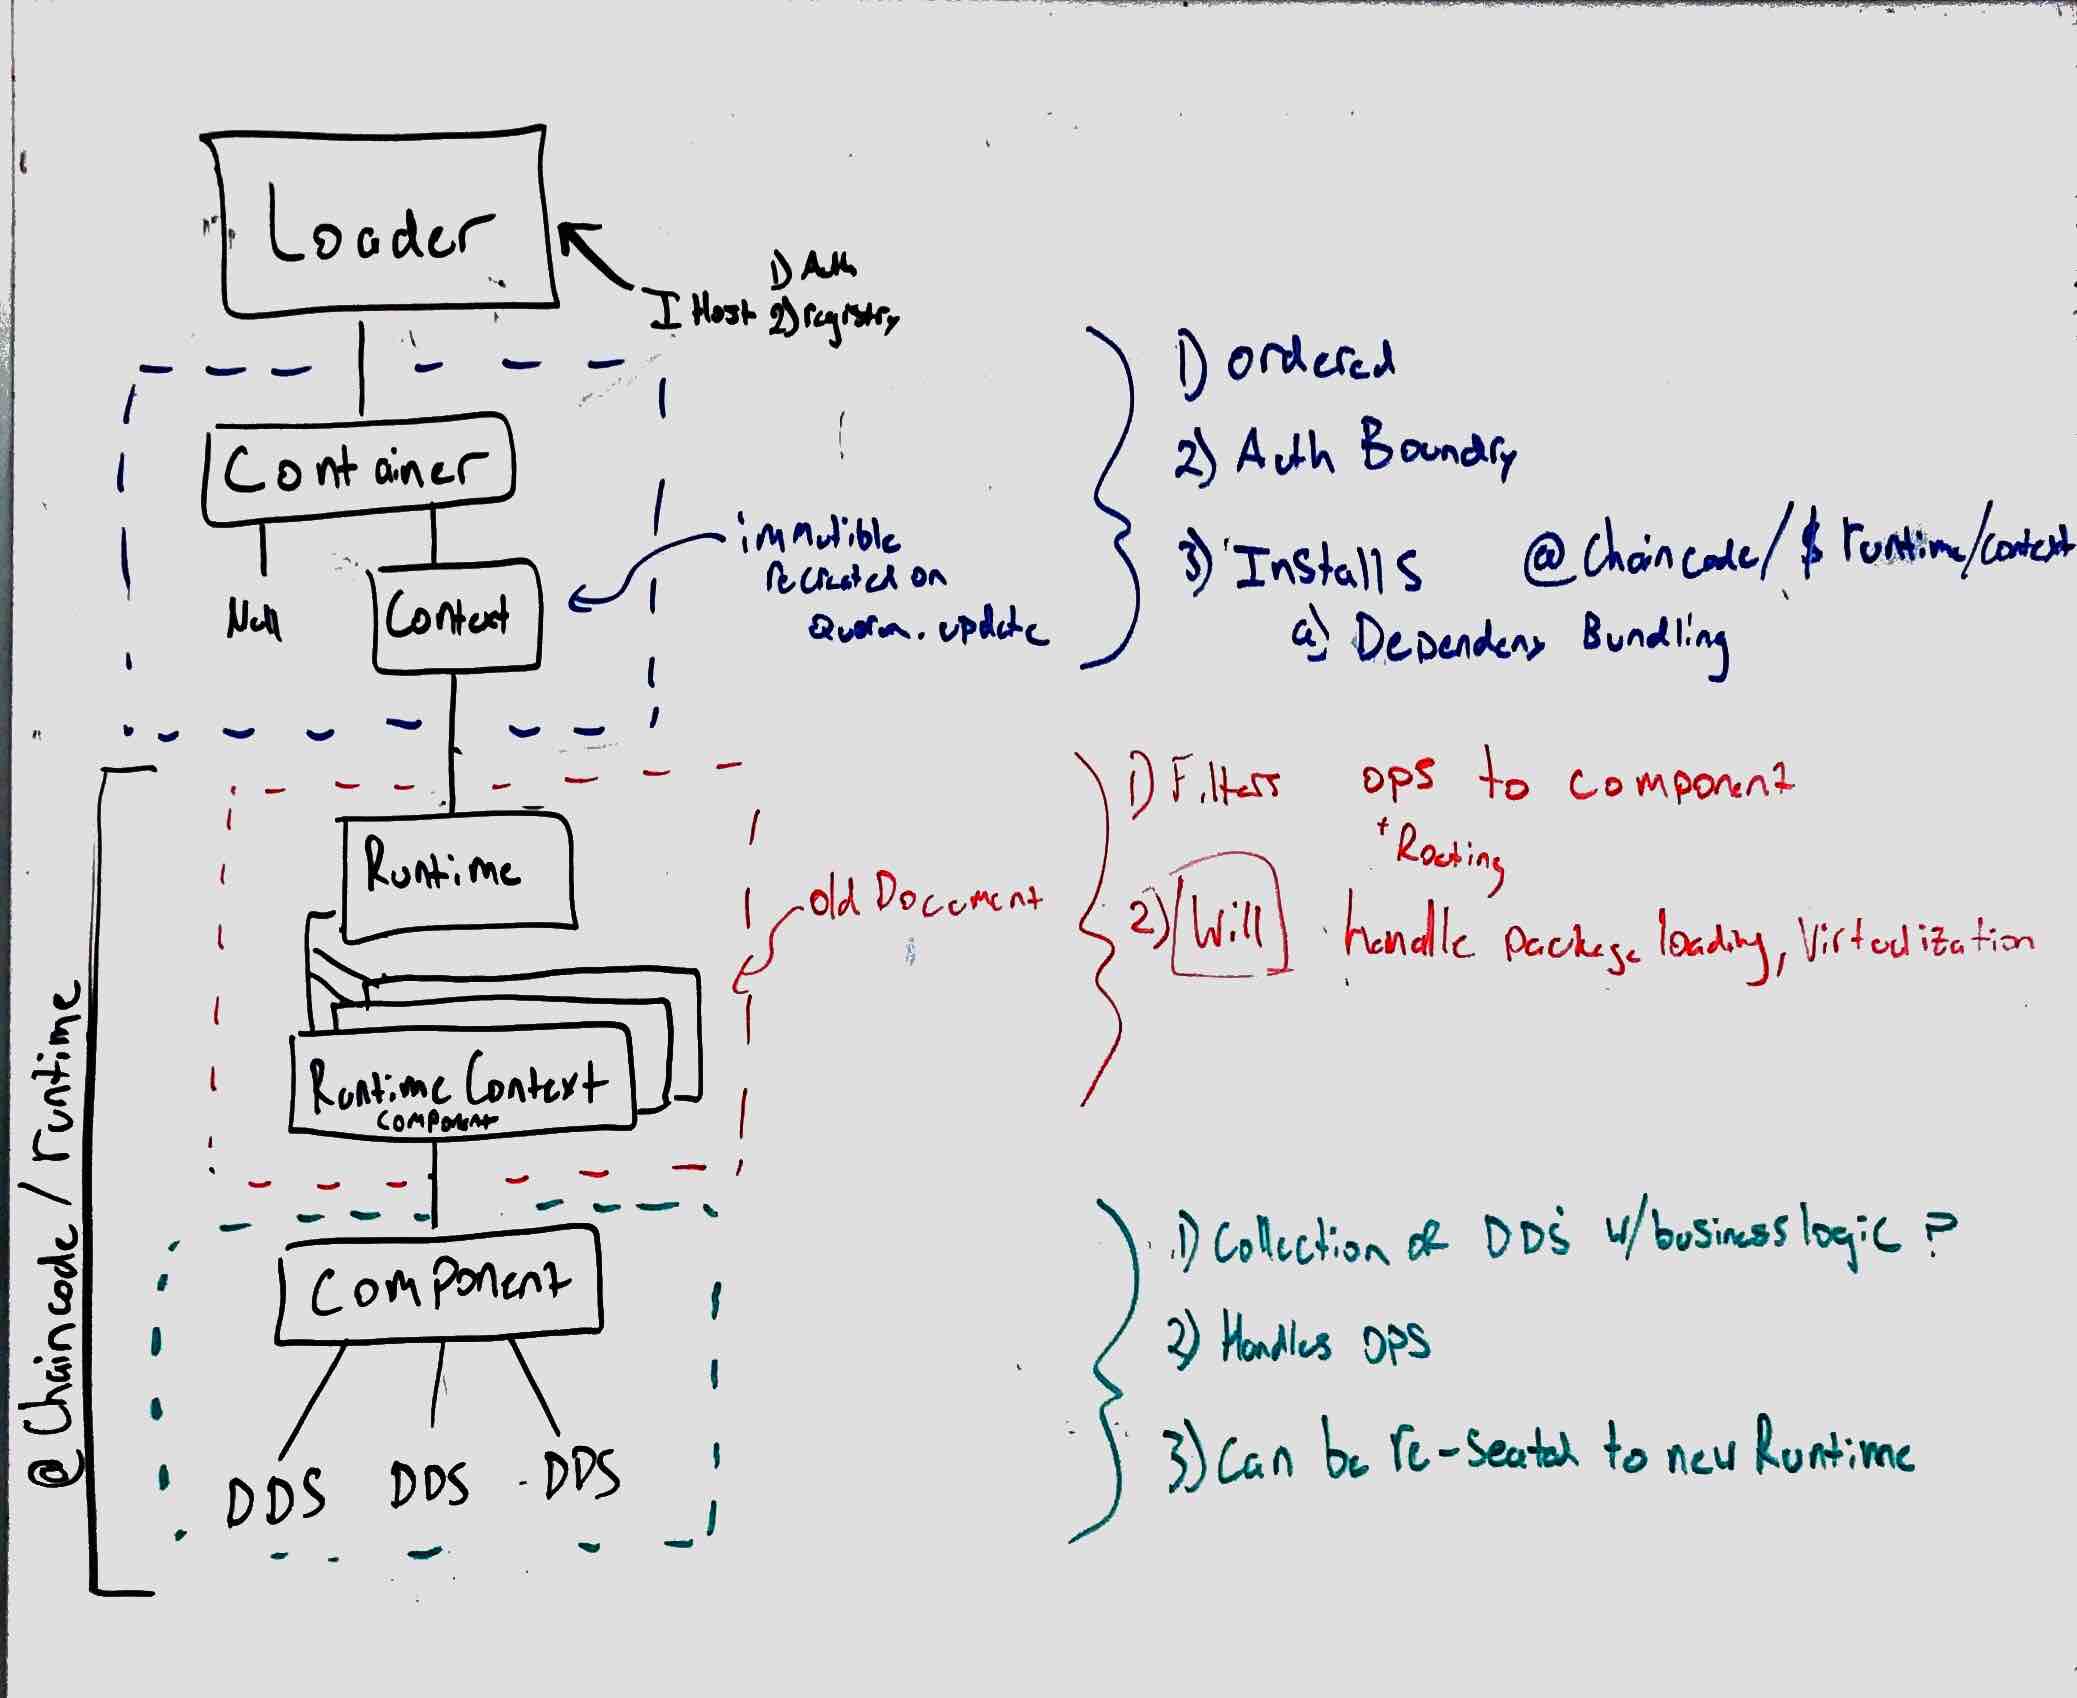 Loader
1) Auth
I Host 2) registry
Container
Null
Context
immutible
recreated on
Quorm. update
1) ordered
2) Auth Boundry
3) Installs @Chaincode/$ runtime/context
a) Dependeny Bundling
@Chaincode/runtime
Runtime
Runtime Context
component
old Document
1) Filters ops to component
+ Routing
2) Will handle package loading, Virtualization
Component
DDS DDS DDS
1) Collection of DDS w/business logic ?
2) Handles ops
3) Can be re-seated to new Runtime